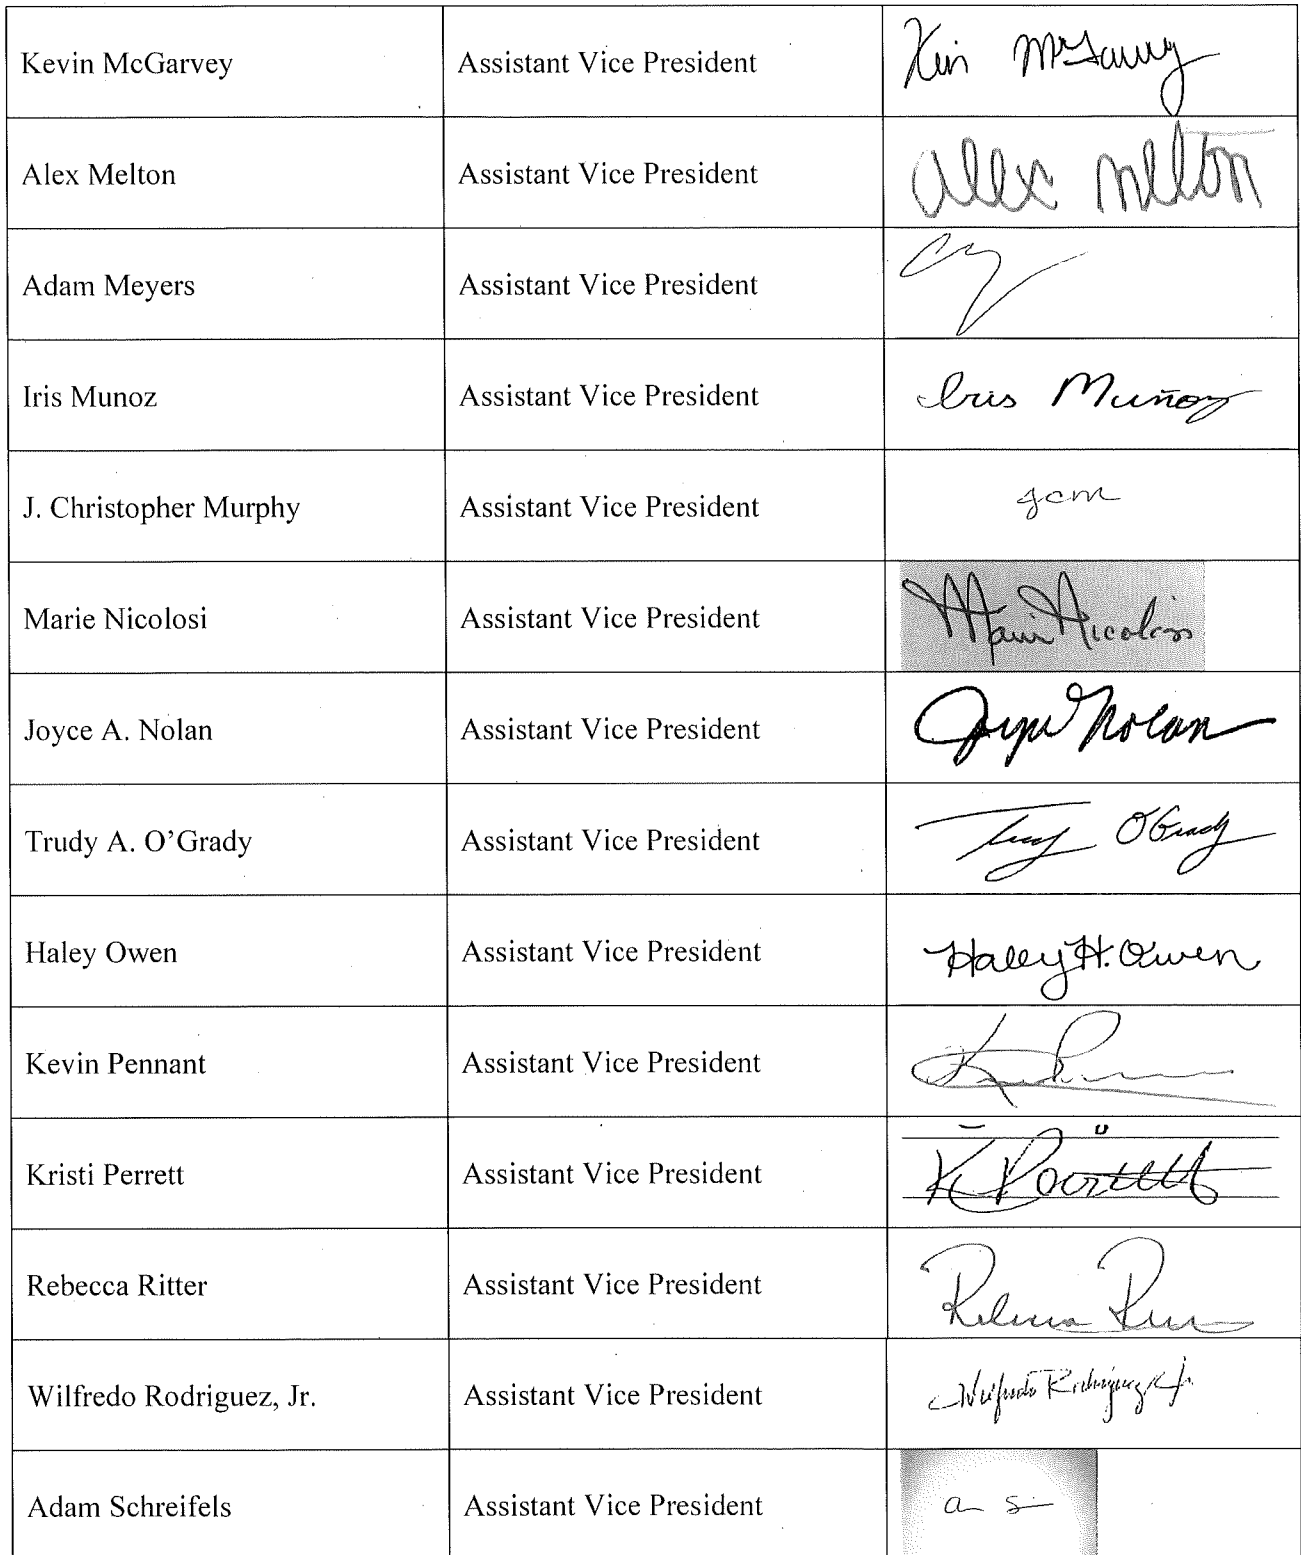 Kevin McGarvey Assistant Vice President
Alex Melton Assistant Vice President alex melton
Adam Meyers Assistant Vice President
Iris Munoz Assistant Vice President Iris Muñoz
J. Christopher Murphy Assistant Vice President jcm
Marie Nicolosi Assistant Vice President
Joyce A. Nolan Assistant Vice President Joyce Nolan
Trudy A. O’Grady Assistant Vice President O'Grady
Haley Owen Assistant Vice President Haley H. Owen
Kevin Pennant Assistant Vice President
Kristi Perrett Assistant Vice President
Rebecca Ritter Assistant Vice President
Wilfredo Rodriguez, Jr. Assistant Vice President Wilfredo Rodriguez, Jr.
Adam Schreifels Assistant Vice President